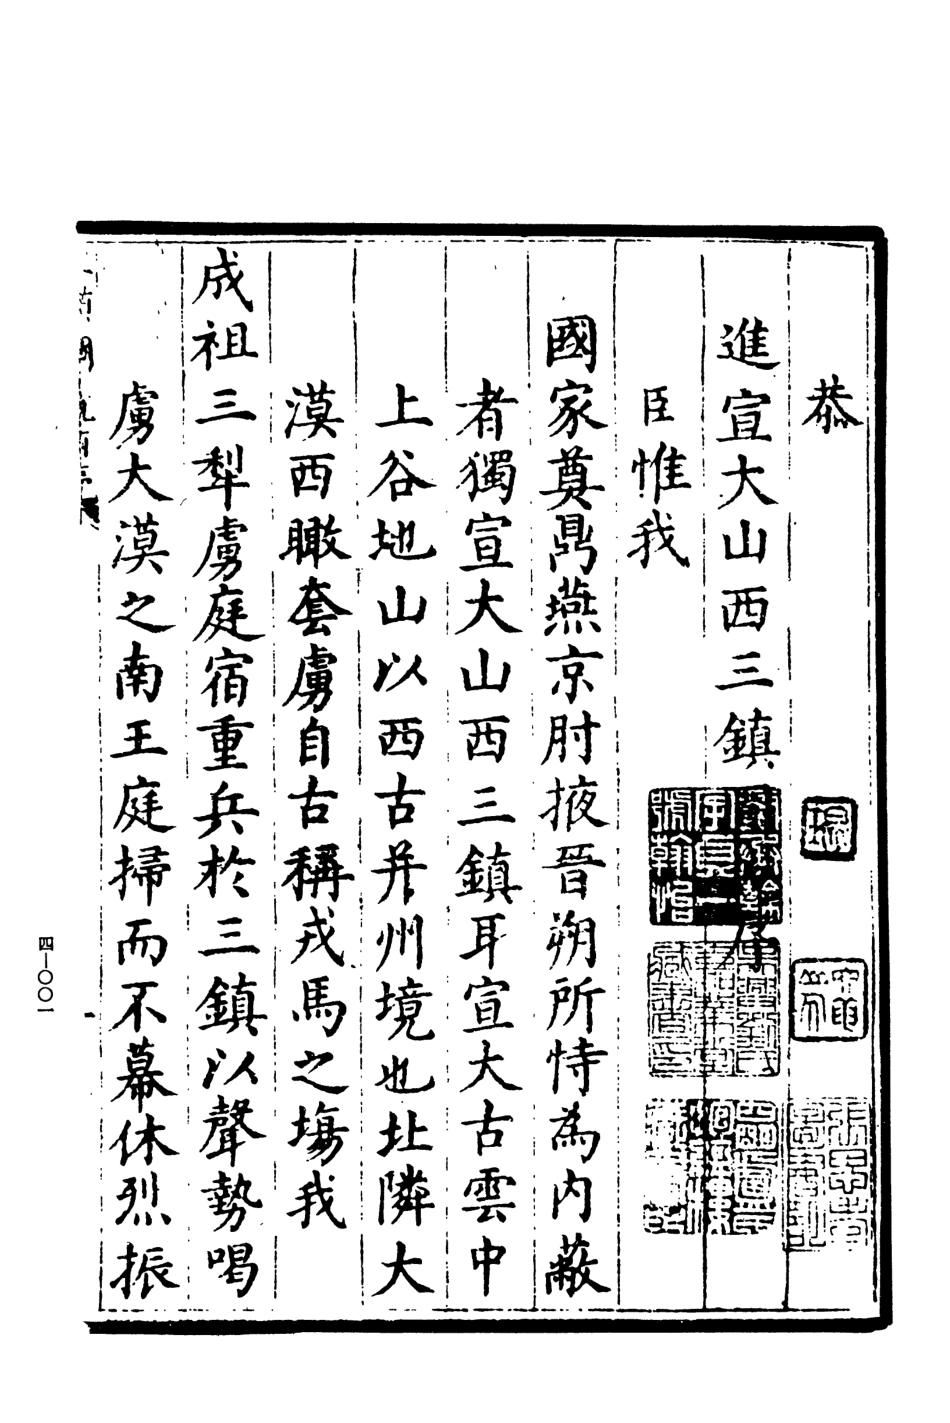 恭
進宣大山西三鎮圖說序
臣惟我
國家奠鼎燕京肘掖晉朔所恃為内蔽
者獨宣大山西三鎮耳宣大古雲中
上谷地山以西古并州境也北隣大
漠西瞰套虜自古稱戎馬之塲我
成祖三犁虜庭宿重兵於三鎮以聲勢喝
虜大漠之南王庭掃而不幕休烈振
四—〇〇一